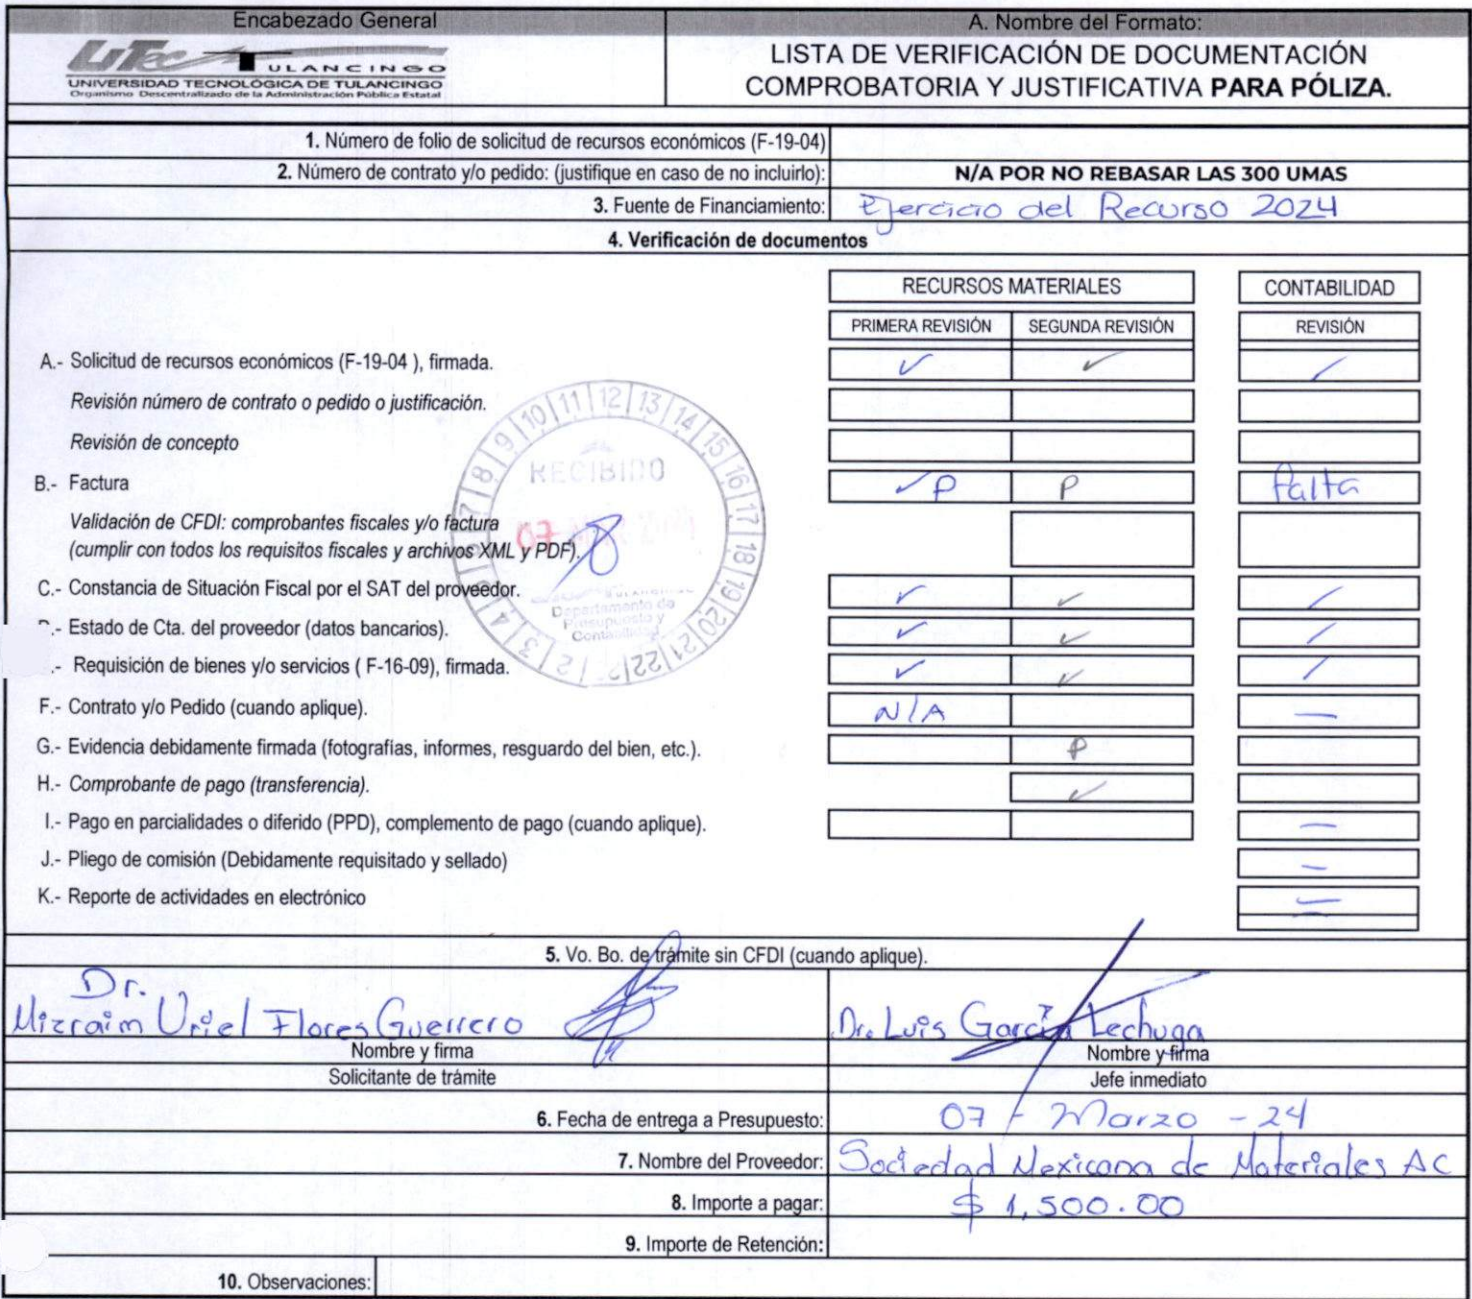 Encabezado General
A. Nombre del Formato:
UTec TULANCINGO
UNIVERSIDAD TECNOLÓGICA DE TULANCINGO
Organismo Descentralizado de la Administración Pública Estatal
LISTA DE VERIFICACIÓN DE DOCUMENTACIÓN
COMPROBATORIA Y JUSTIFICATIVA PARA PÓLIZA.
1. Número de folio de solicitud de recursos económicos (F-19-04)
2. Número de contrato y/o pedido: (justifique en caso de no incluirlo): N/A POR NO REBASAR LAS 300 UMAS
3. Fuente de Financiamiento: Ejercicio del Recurso 2024
4. Verificación de documentos
RECURSOS MATERIALES CONTABILIDAD
PRIMERA REVISIÓN SEGUNDA REVISIÓN REVISIÓN
A.- Solicitud de recursos económicos (F-19-04 ), firmada. ✓ ✓ ✓
Revisión número de contrato o pedido o justificación.
Revisión de concepto
B.- Factura ✓P P falta
Validación de CFDI: comprobantes fiscales y/o factura
(cumplir con todos los requisitos fiscales y archivos XML y PDF).
C.- Constancia de Situación Fiscal por el SAT del proveedor. ✓ ✓ ✓
.- Estado de Cta. del proveedor (datos bancarios). ✓ ✓ ✓
.- Requisición de bienes y/o servicios ( F-16-09), firmada. ✓ ✓ ✓
F.- Contrato y/o Pedido (cuando aplique). N/A —
G.- Evidencia debidamente firmada (fotografías, informes, resguardo del bien, etc.). P
H.- Comprobante de pago (transferencia). ✓
I.- Pago en parcialidades o diferido (PPD), complemento de pago (cuando aplique). —
J.- Pliego de comisión (Debidamente requisitado y sellado) —
K.- Reporte de actividades en electrónico —
1 2 3 4 5 6 7 8 9 10 11 12 13 14 15 16 17 18 19 20 21 22
RECIBIDO
07 MAR
Departamento de
Presupuesto y
Contabilidad
5. Vo. Bo. de trámite sin CFDI (cuando aplique).
Dr.
Mizraim Uriel Flores Guerrero
Dr. Luis García Lechuga
Nombre y firma
Nombre y firma
Solicitante de trámite
Jefe inmediato
6. Fecha de entrega a Presupuesto: 07 - Marzo - 24
7. Nombre del Proveedor: Sociedad Mexicana de Materiales AC
8. Importe a pagar: $ 1,500.00
9. Importe de Retención:
10. Observaciones: